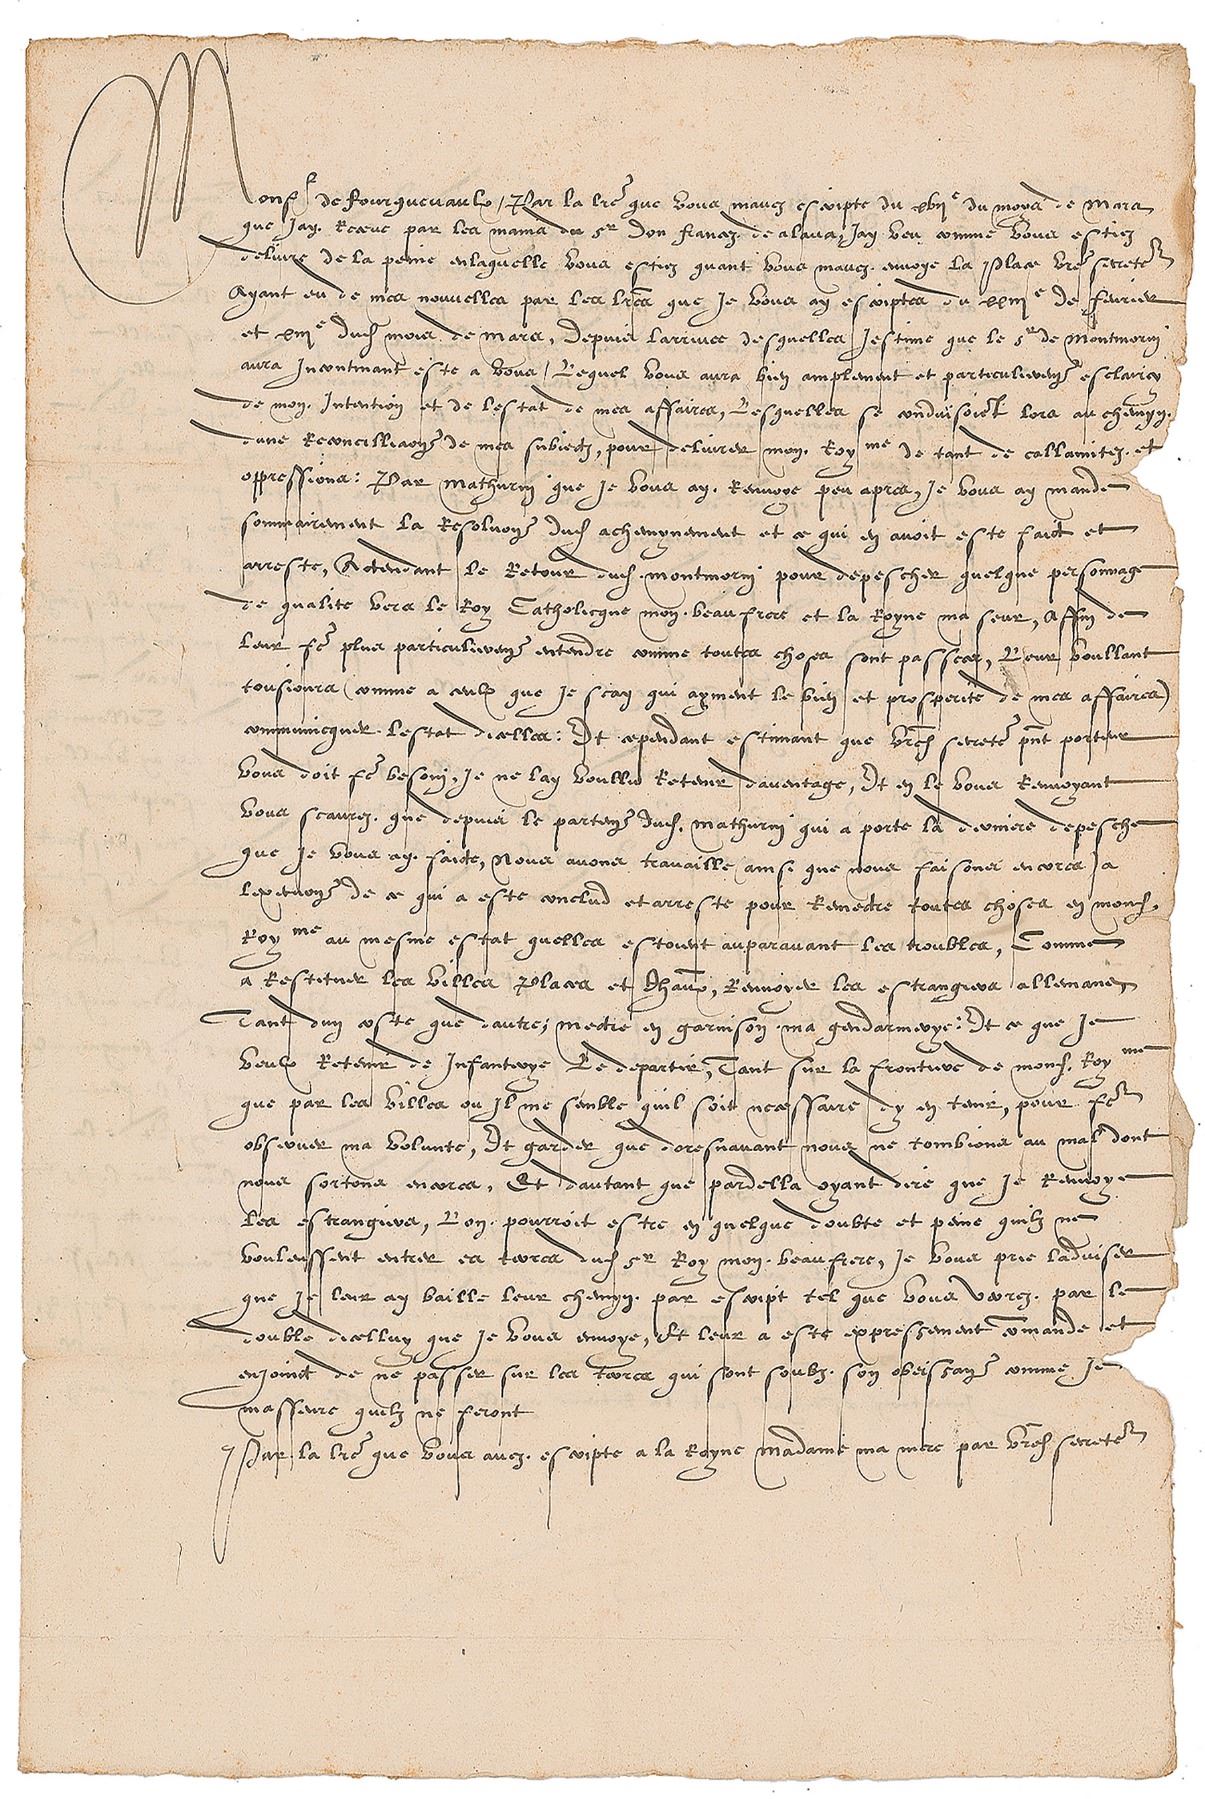 Monsr de Fourquevaulx, Par la lre que vous mavez escripte du xviije du moys de mars
que Jay Receue par les mains du sr don frances de alava, Jay veu comme vous estiez
delivre de la peine enlaquelle vous estiez quant vous mavez envoye La Place vre secrete
Ayant eu de mes nouvelles par les lres que Je vous ay escriptes du xxiije De fevrier
et xiije dud mois de mars, Depuis larrivee desquelles Jestime que le sr de Montmorin
aura Incontinant este a vous, Lequel vous aura bien amplement et particulierement esclaircy
de mon Intention et de lestat de mes affaires, Lesquelles se conduisoient lors au chemyn
dune Reconcilliaon de mes subiectz, pour delivrer mon Royme De tant de callamitez et
oppressions: Par Mathurin que Je vous ay Renvoye peu apres, Je vous ay mande
sommairement La Resoluon dud achemynement et ce qui en avoit este faict et
arreste, Actendant le Retour dud montmorin pour depescher quelque personnage
de qualite vers le Roy Catholicque mon beaufrere et la Royne ma seur, Affin de
Leur fe plus particulierement entendre comme toutes choses sont passees, Leur voullant
tousiours (comme a ceulx que Je scay qui ayment le bien et prosperite de mes affaires)
communicquer lestat dicelles: Et cependant estimant que vred secrete pnt porteur
vous doit fe besoin, Je ne lay voullu Retenir davantage, Et en le vous Renvoyant
vous scaurez que depuis le partement dud Mathurin qui a porte la derniere depesche
que Je vous ay faicte, Nous avons travaille ainsi que nous faisons encores a
lexecuon de ce qui a este conclud et arreste pour Remectre toutes choses en mond
Royme au mesme estat quelles estoient auparavant les troubles, Comme
a Restituer les villes Places et Chaux, Renvoyer les estrangiers allemans
Tant dun coste que dautre, mectre en garnison ma gendarmerye: Et ce que Je
veulx Retenir de Infanterye Le departir, Tant sur la frontiere de mond Royme
que par les villes ou Il me semble quil soit necessaire dy en tenir, pour fe
observer ma volunte, Et garder que doresnavant nous ne tombions au mal dont
nous sortons encores, Et dautant que pardella oyant dire que Je Renvoye
Les estrangiers, Lon pourroit estre en quelque doubte et peine quilz ne
voulussent entrer es terres dud sr Roy mon beaufrere, Je vous prie ladviser
que Je leur ay baille leur chemyn par escript tel que vous verrez par le
double dicelluy que Je vous envoye, Et leur a este expressement comande et
enjoinct de ne passer sur les terres qui sont soubz son obeissance comme Je
masseure quilz ne feront
Par la lre que vous avez escripte a la Royne Madame ma mere par vred secrete